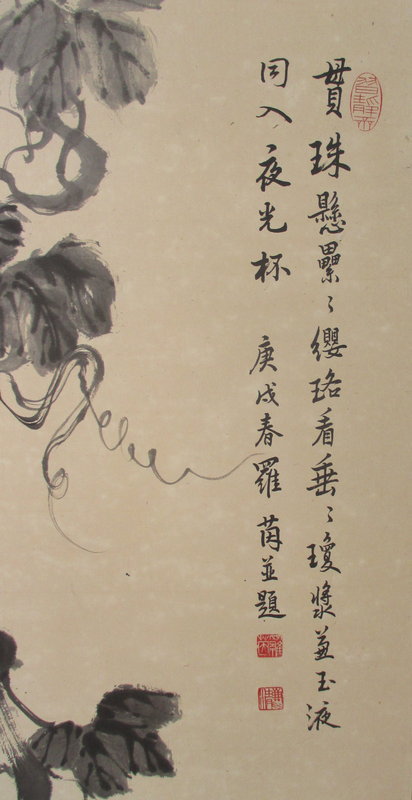 貫珠懸纍々纓珞看垂々瓊漿兼玉液
同入夜光杯 庚戌春羅芮並題